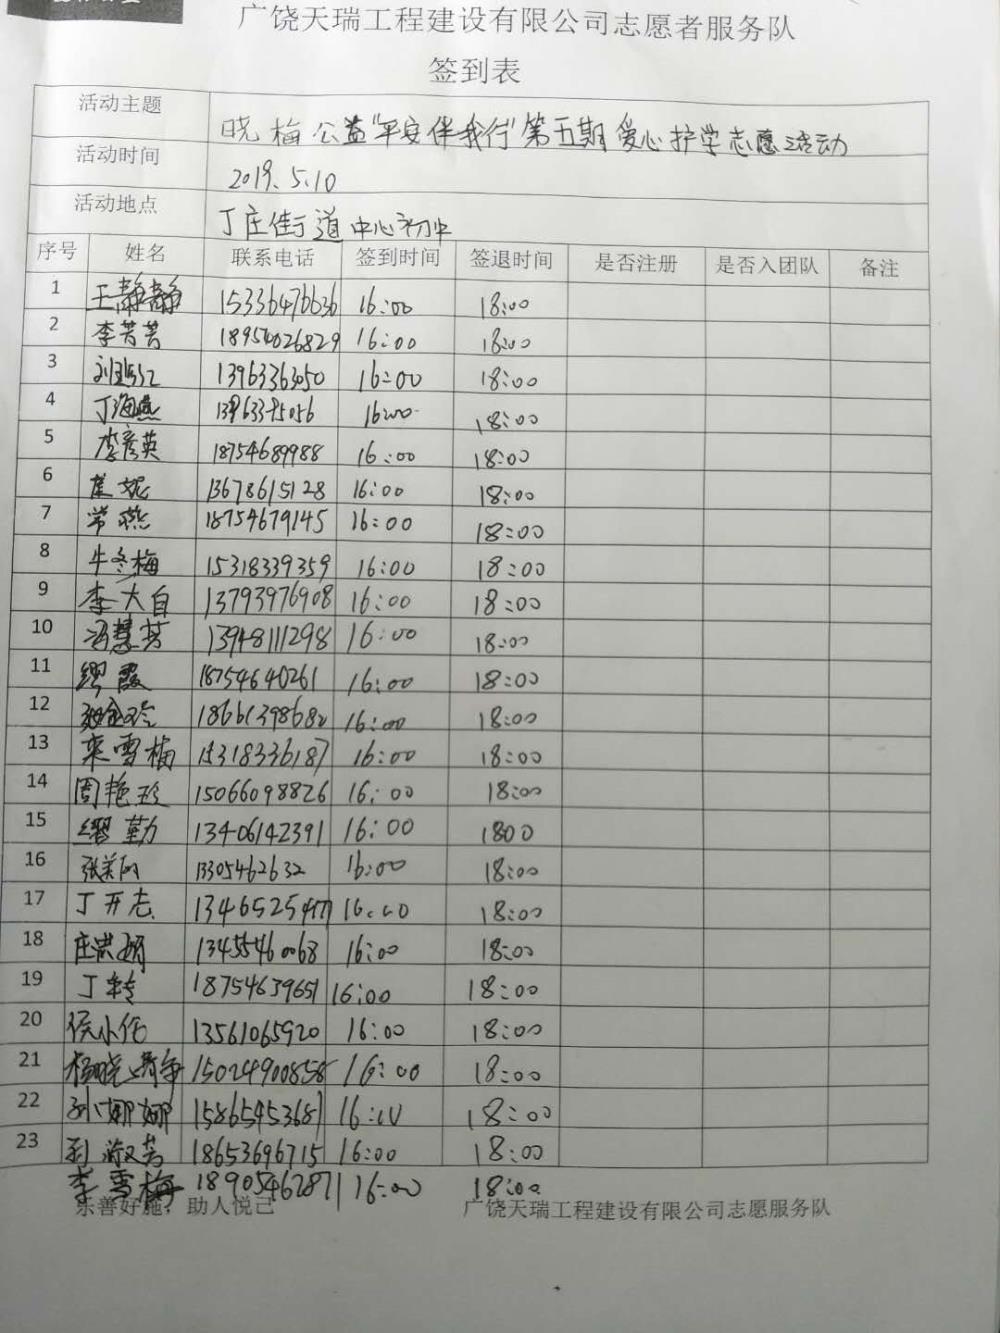 广饶天瑞工程建设有限公司志愿者服务队
签到表
活动主题 晓梅公益"平安伴我行"第五期爱心护学志愿活动
活动时间 2019.5.10
活动地点 丁庄街道中心初中
序号 姓名 联系电话 签到时间 签退时间 是否注册 是否入团队 备注
1 王静静 15336476636 16:00 18:00
2 李芳芳 18954026829 16:00 18:00
3 13963363050 16:00 18:00
4 丁海燕 16:00 18:00
5 李彦英 18754689988 16:00 18:00
6 13678615128 16:00 18:00
7 常燕 18754679145 16:00 18:00
8 牛冬梅 15318339359 16:00 18:00
9 李大自 13793976908 16:00 18:00
10 冯慧芳 13948111298 16:00 18:00
11 缪霞 18754640261 16:00 18:00
12 18661398682 16:00 18:00
13 来雪梅 15318336187 16:00 18:00
14 周艳珍 15066098826 16:00 18:00
15 缪勤 13406142391 16:00 1800
16 张美 13305462632 16:00 18:00
17 丁开志 16:00 18:00
18 庄洪娟 13455460068 16:00 18:00
19 丁转 18754639651 16:00 18:00
20 侯小伟 13561065920 16:00 18:00
21 杨晓 15024900858 16:00 18:00
22 孙娜娜 15865453687 16:00 18:00
23 淑芳 18653696715 16:00 18:00
李雪梅 18905462871 16:00 18:00
乐善好施，助人悦己 广饶天瑞工程建设有限公司志愿服务队